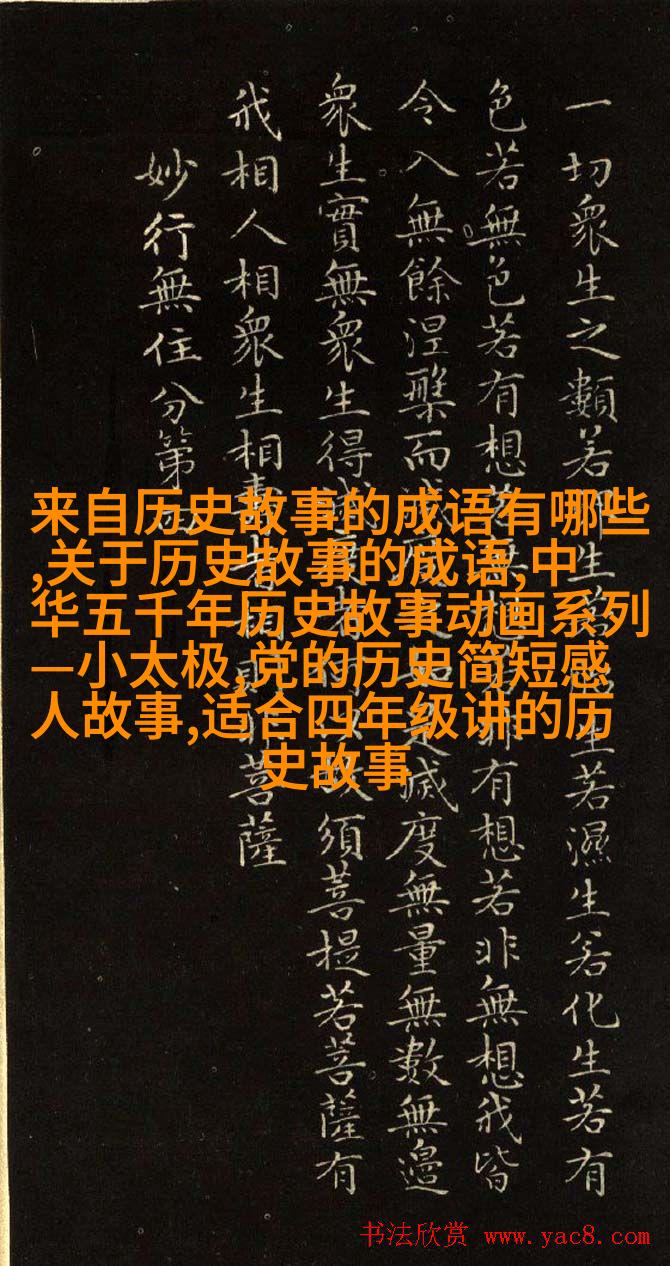 一切衆生之類若卵生若胎生若濕生若化生若有
色若無色若有想若無想若非有想若非無想我皆
令入無餘涅槃而滅度之如是滅度無量無數無邊
衆生實無衆生得滅度者何以故須菩提若菩薩有
我相人相衆生相壽者相即非菩薩
妙行無住分第四
来自历史故事的成语有哪些
,关于历史故事的成语,中
华五千年历史故事动画系列
—小太极,党的历史简短感
人故事,适合四年级讲的历
史故事
书法欣赏 www.yac8.com